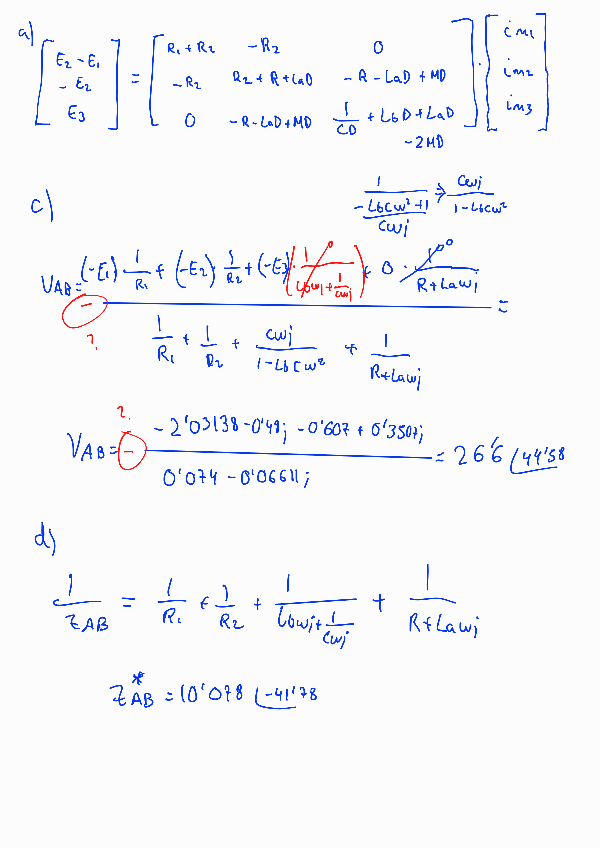 a) [ E2 - E1 ; - E2 ; E3 ] = [ R1 + R2 , - R2 , 0 ; - R2 , R2 + R + LaD , - R - LaD + MD ; 0 , - R - LaD + MD , 1/CD + LbD + LaD - 2MD ] · [ im1 ; im2 ; im3 ]
1 / ((-LbCw²+1)/Cwj) → Cwj / (1-LbCw²)
c)
VAB = - ( (-E1) · 1/R1 + (-E2) · 1/R2 + (-E3) ( 1 / (Lbwj + 1/Cwj) ) + 0 · 1 / (R+Lawj) ) / ( 1/R1 + 1/R2 + Cwj / (1-LbCw²) + 1 / (R+Lawj) ) =
?
?
VAB = - ( -2'03138 -0'48j -0'607 + 0'3507j ) / ( 0'074 - 0'06611j ) = 26'6 ∠44'58
d)
1/ZAB = 1/R1 + 1/R2 + 1 / (Lbwj + 1/Cwj) + 1 / (R+Lawj)
ZAB* = 10'078 ∠-41'78